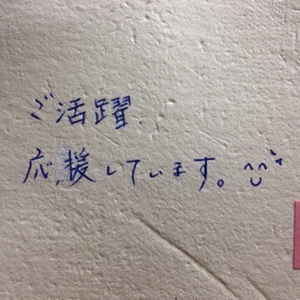 ご活躍
応援しています。^^